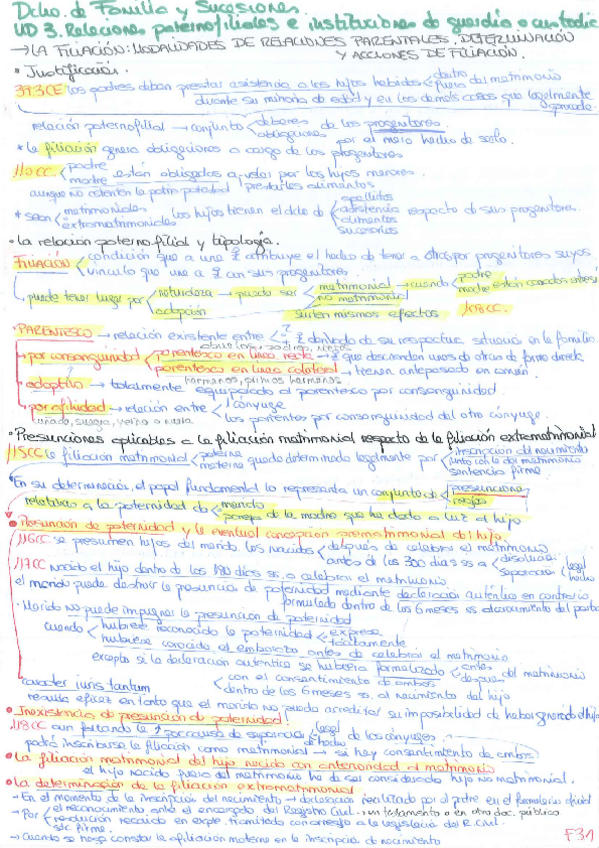 Dcho. de Familia y Sucesiones.
UD 3. Relaciones paternofiliales e instituciones de guarda o custodia
→ LA FILIACIÓN: MODALIDADES DE RELACIONES PARENTALES. DETERMINACIÓN
Y ACCIONES DE FILIACIÓN.
• Justificación.
39.3CE los padres deban prestar asistencia a los hijos habidos dentro fuera del matrimonio
durante su minoría de edad y en los demás casos que legalmente proceda
relación paternofilial → conjunto deberes obligaciones de los progenitores
por el mero hecho de serlo.
* la filiación genera obligaciones a cargo de los progenitores
110CC. padre madre están obligados a velar por los hijos menores.
aunque no ostenten la patria potestad prestarles alimentos
* sean matrimoniales extramatrimoniales los hijos tienen el dcho de apellidos asistencia alimentos sucesorios respecto de sus progenitores.
• La relación paternofilial y tipología.
FILIACIÓN condición que a una atribuye el hecho de tener a otras por progenitores suyos
vínculo que une a con sus progenitores.
puede tener lugar por naturaleza → puede ser matrimonial → cuando padre madre están casados entre sí
no matrimonial
adopción surten mismos efectos 108CC.
• PARENTESCO → relación existente entre derivada de su respectiva situación en la familia.
• por consanguinidad parentesco en línea recta → que descienden unas de otras de forma directa
parentesco en línea colateral → tienen antepasado en común.
hermanos, primos hermanos
• adoptivo → totalmente equiparado al parentesco por consanguinidad
• por afinidad → relación entre 1 cónyuge
los parientes por consanguinidad del otro cónyuge.
cuñado, suegra, yerno o nuera
• Presunciones aplicables a la filiación matrimonial respecto de la filiación extramatrimonial
115CC la filiación matrimonial paterna materna queda determinada legalmente por inscripción del nacimiento
junto con la del matrimonio
sentencia firme
En su determinación, el papel fundamental lo representa un conjunto de presunciones reglas
relativas a la paternidad de marido
pareja de la madre que ha dado a luz al hijo
• Presunción de paternidad y la eventual concepción prematrimonial del hijo.
116CC se presumen hijos del marido los nacidos después de celebrar el matrimonio
antes de los 300 días ss a disolución separación legal hecho
117CC nacido el hijo dentro de los 180 días ss. a celebrar el matrimonio
el marido puede destruir la presunción de paternidad mediante declaración auténtica en contrario
formulada dentro de los 6 meses ss al conocimiento del parto
· Marido no puede impugnar la presunción de paternidad
cuando hubiese reconocido la paternidad expresa tácitamente
hubiese conocido el embarazo antes de celebrar el matrimonio
excepto si la declaración auténtica se hubiera formalizado antes después del matrimonio
con el consentimiento de ambos
dentro de los 6 meses ss. al nacimiento del hijo
carácter iuris tantum
resulta eficaz en tanto que el marido no pueda acreditar su imposibilidad de haber generado el hijo
• Inexistencia de presunción de paternidad.
118CC aun faltando la por causa de separación legal de hecho de los cónyuges.
podrá inscribirse la filiación como matrimonial → si hay consentimiento de ambos
• La filiación matrimonial del hijo nacido con anterioridad al matrimonio
el hijo nacido fuera del matrimonio ha de ser considerado hijo no matrimonial.
• La determinación de la filiación extramatrimonial
- En el momento de la inscripción del nacimiento → declaración realizada por el padre en el formulario oficial
- Por el reconocimiento ante el encargado del Registro Civil. - en testamento o en otro doc. público
resolución recaída en expte. tramitado con arreglo a la legislación del R. Civil.
stc firme.
- Cuando se haga constar la filiación materna en la inscripción de nacimiento
F31